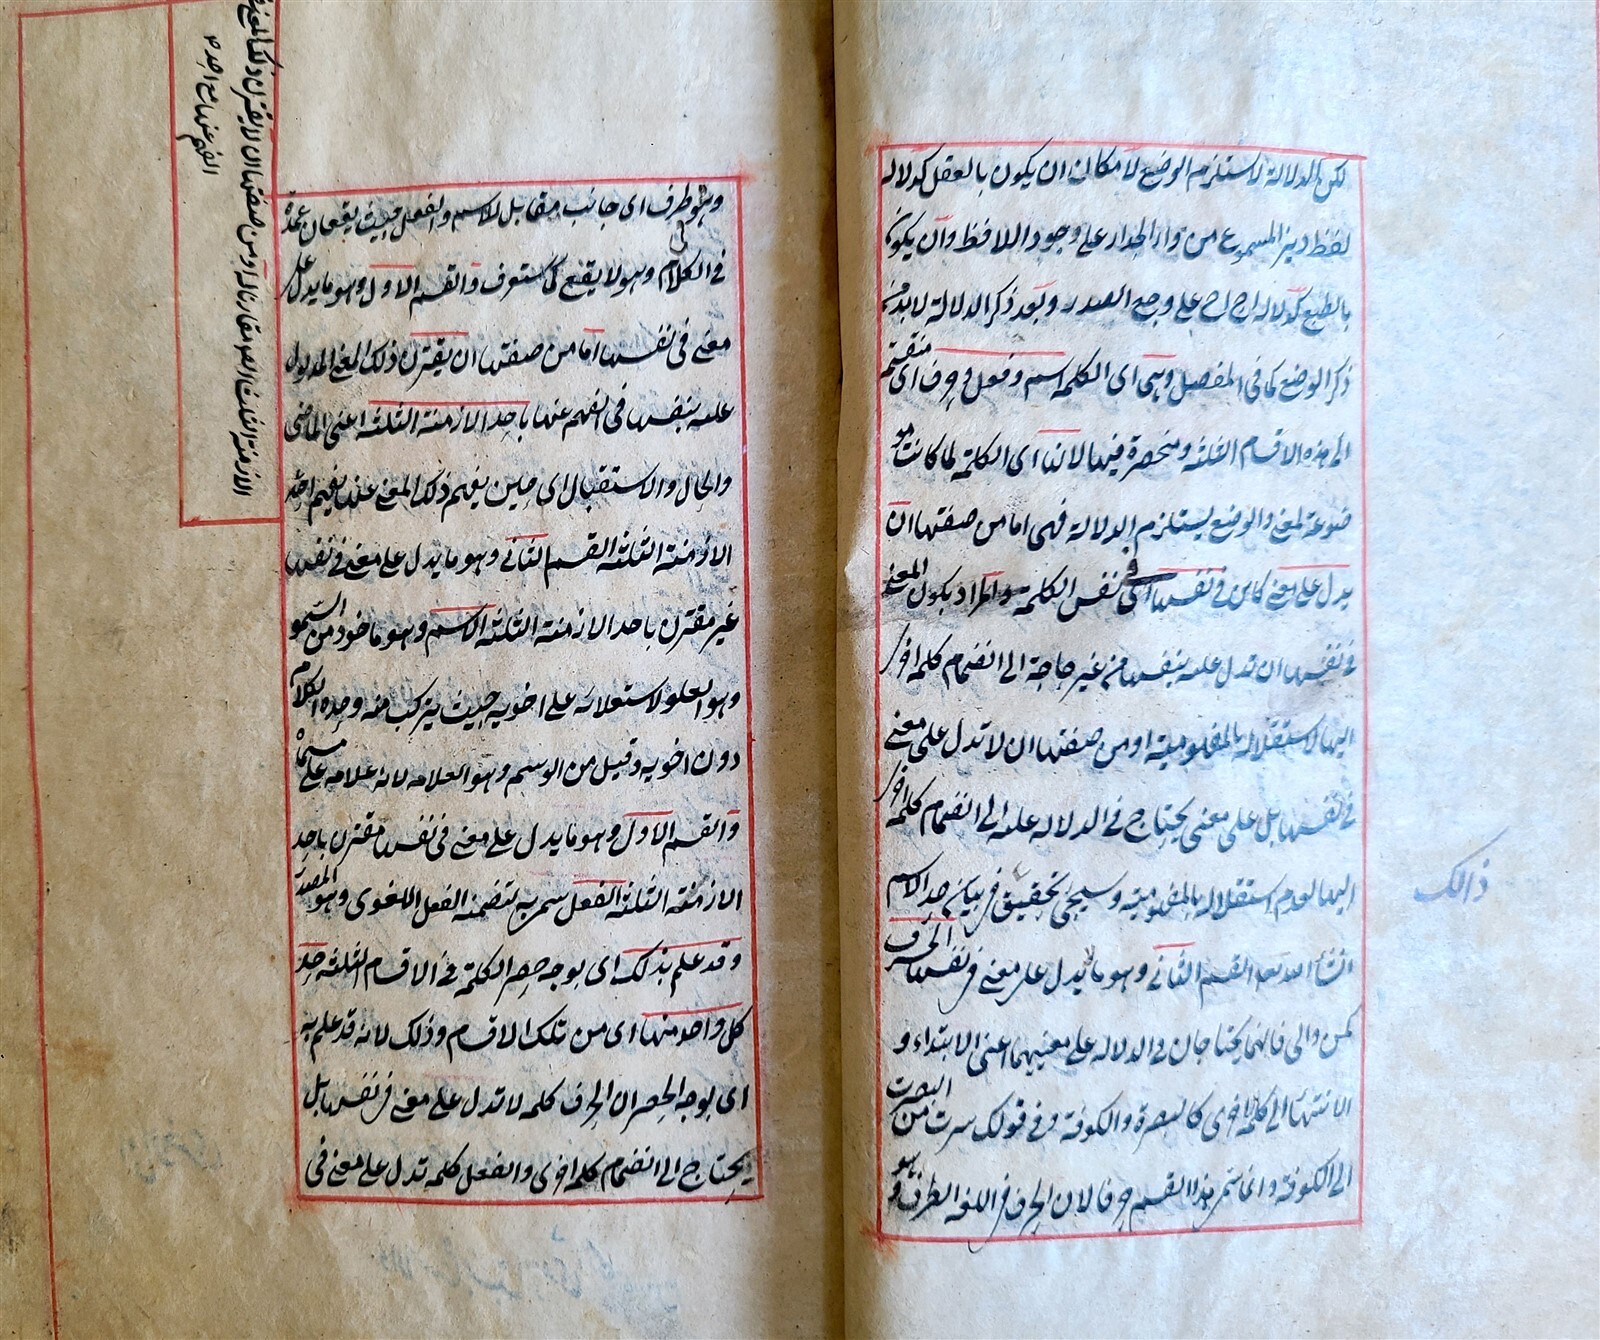 لكن الدلالة لا تستلزم الوضع لامكان ان يكون بالعقل كدلالة
لفظ ديز المسموع من وراء الجدار على وجود اللافظ وان يكون
بالطبع كدلالة اح اح على وجع الصدر وبعد ذكر الدلالة لا بد من
ذكر الوضع كما في المفصل وهى اى الكلمة اسم وفعل وحرف اى منقسمة
الى هذه الاقسام الثلثة ومنحصرة فيها لانها اى الكلمة لما كانت مو
ضوعة لمعنى والوضع يستلزم الدلالة فهى اما من صفتها ان
يدل على معنى كائن في نفسها اى في نفس الكلمة والمراد بكون المعنى
في نفسها ان تدل عليه بنفسها من غير حاجة الى انضمام كلمة اخرى
اليها لاستقلاله بالمفهومية او من صفتها ان لا تدل على معنى
في نفسها بل على معنى يحتاج في الدلالة عليه الى انضمام كلمة اخرى
اليها لعدم استقلاله بالمفهومية وسيجئ تحقيق في بيان حد الاسم
انشأ الله تعه القسم الثاني وهو ما لا يدل على معنى في نفسها الحرف
كمن والى فانهما يحتاجان في الدلالة على معنييهما اعنى الابتداء و
الانتهاء الى كلمة اخرى كالبصرة والكوفة في قولك سرت من البصرة
الى الكوفة وانما سمى هذا القسم حرفا لان الحرف في اللغة الطرف وهو
ذالك
وهو طرف اى جانب مقابل للاسم والفعل حيث يقعان عمدة
في الكلام وهو لا يقع كما ستعرف والقسم الاول وهو ما يدل على
معنى في نفسها اما من صفتها ان يقترن ذلك المعنى المدلول
عليه بنفسها في الفهم عنها باحد الازمنة الثلثة اعنى الماضى
والحال والاستقبال اى حين يفهم ذلك المعنى عنها يفهم احد
الازمنة الثلثة القسم الثاني وهو ما يدل على معنى في نفسها
غير مقترن باحد الازمنة الثلثة الاسم وهو ماخوذ من السمو
وهو العلو لاستعلائه على اخويه حيث يتركب منه وحده الكلام
دون اخويه وقيل من الوسم وهو العلامة لانه علامة على مسماه
والقسم الاول وهو ما يدل على معنى في نفسها مقترن باحد
الازمنة الثلثة الفعل سمى به لتضمنه الفعل اللغوى وهو المصدر
وقد علم بذلك اى بوجه حصر الكلمة في الاقسام الثلثة حد
كل واحد منها اى من تلك الاقسام وذلك لانه قد علم به
اى بوجه الحصر ان الحرف كلمة لا تدل على معنى في نفسها بل
يحتاج الى انضمام كلمة اخرى والفعل كلمة تدل على معنى في
او من صفتها ان لا يقترن ذلك المعنى
الازمنة الثلثة
الفهم عنها مع احد